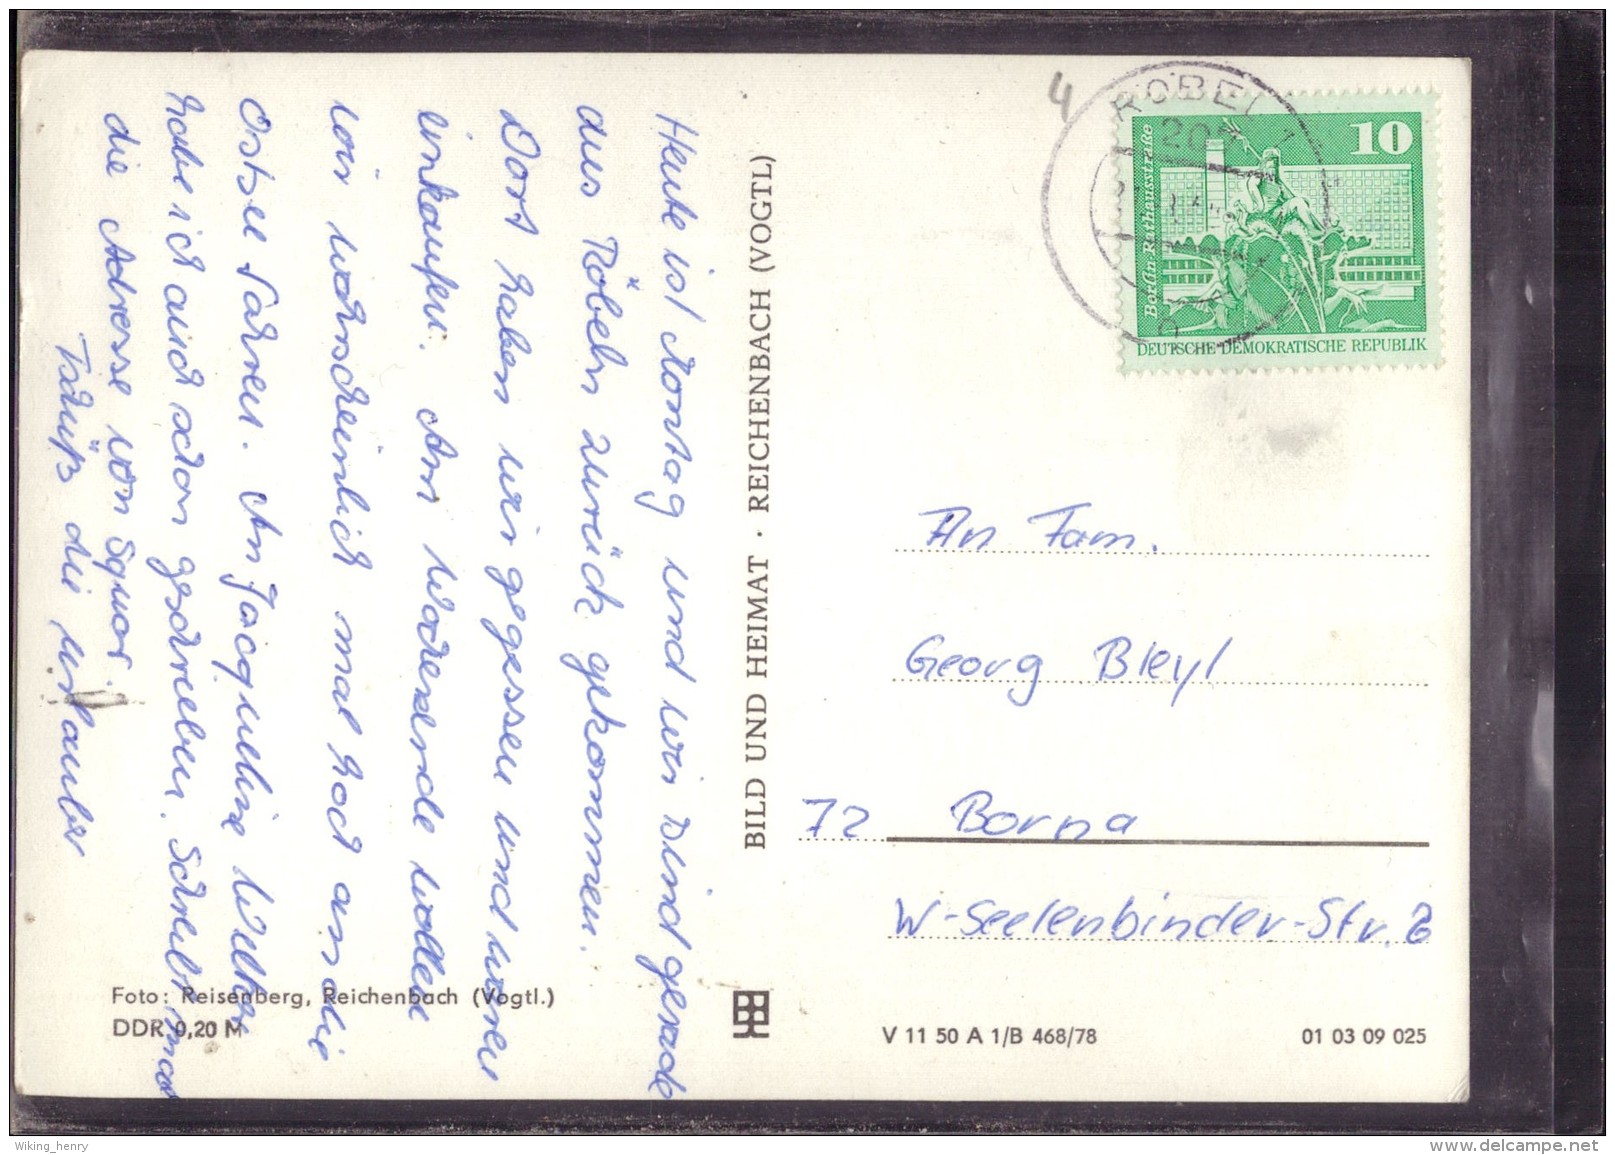 Heute ist Montag und wir sind gerade
aus Röbeln zurück gekommen.
Dort haben wir gegessen und waren
einkaufen. Am Wochenende wollen
wir warscheinlich mal hoch an die
Ostsee fahren. An Jacqueline Walter
habe ich auch schon geschrieben. Schreibt mal
die Adresse von Squor.
Tschüß die Urlauber
BILD UND HEIMAT · REICHENBACH (VOGTL)
4
RÖBEL
10
Berlin-Rathausstraße
DEUTSCHE DEMOKRATISCHE REPUBLIK
An Fam.
Georg Bleyl
72 Borna
W-Seelenbinder-Str.
Foto: Reisenberg, Reichenbach (Vogtl.)
DDR 0,20 M
V 11 50 A 1/B 468/78
01 03 09 025
Wiking_henry
www.delcampe.net